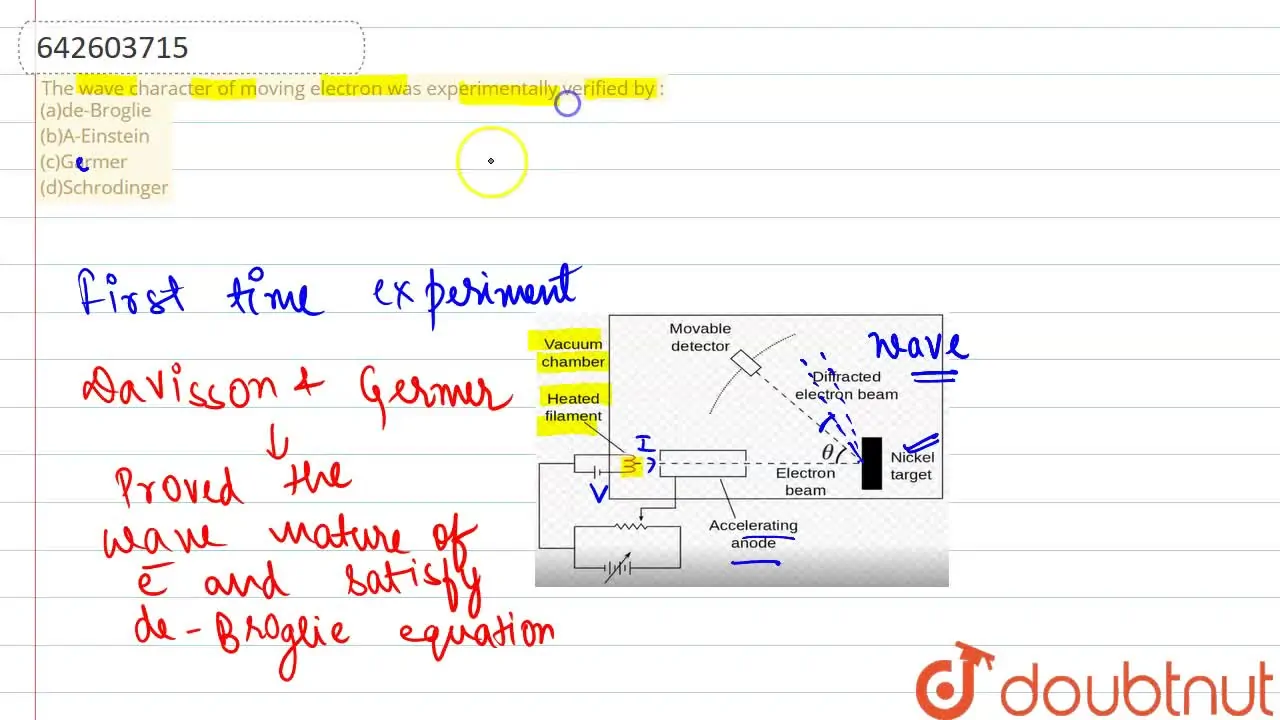 642603715
The wave character of moving electron was experimentally verified by :
(a)de-Broglie
(b)A-Einstein
(c)Germer
(d)Schrodinger
First time experiment
Davisson & Germer
↓
Proved the
wave nature of
e⁻ and satisfy
de-Broglie equation
Vacuum
chamber
Heated
filament
Movable
detector
wave
Diffracted
electron beam
θ
Nickel
target
I
V
Electron
beam
Accelerating
anode
doubtnut